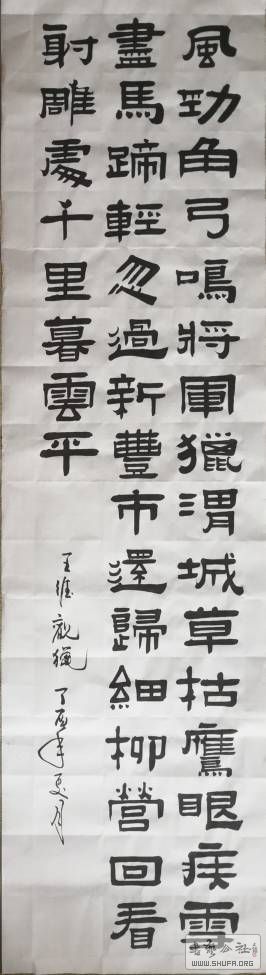 風勁角弓鳴將軍獵渭城草枯鷹眼疾雪
盡馬蹄輕忽過新豐市還歸細柳營回看
射雕處千里暮雲平
王維觀獵 丁酉年夏月
書藝公社
WWW.SHUFA.ORG